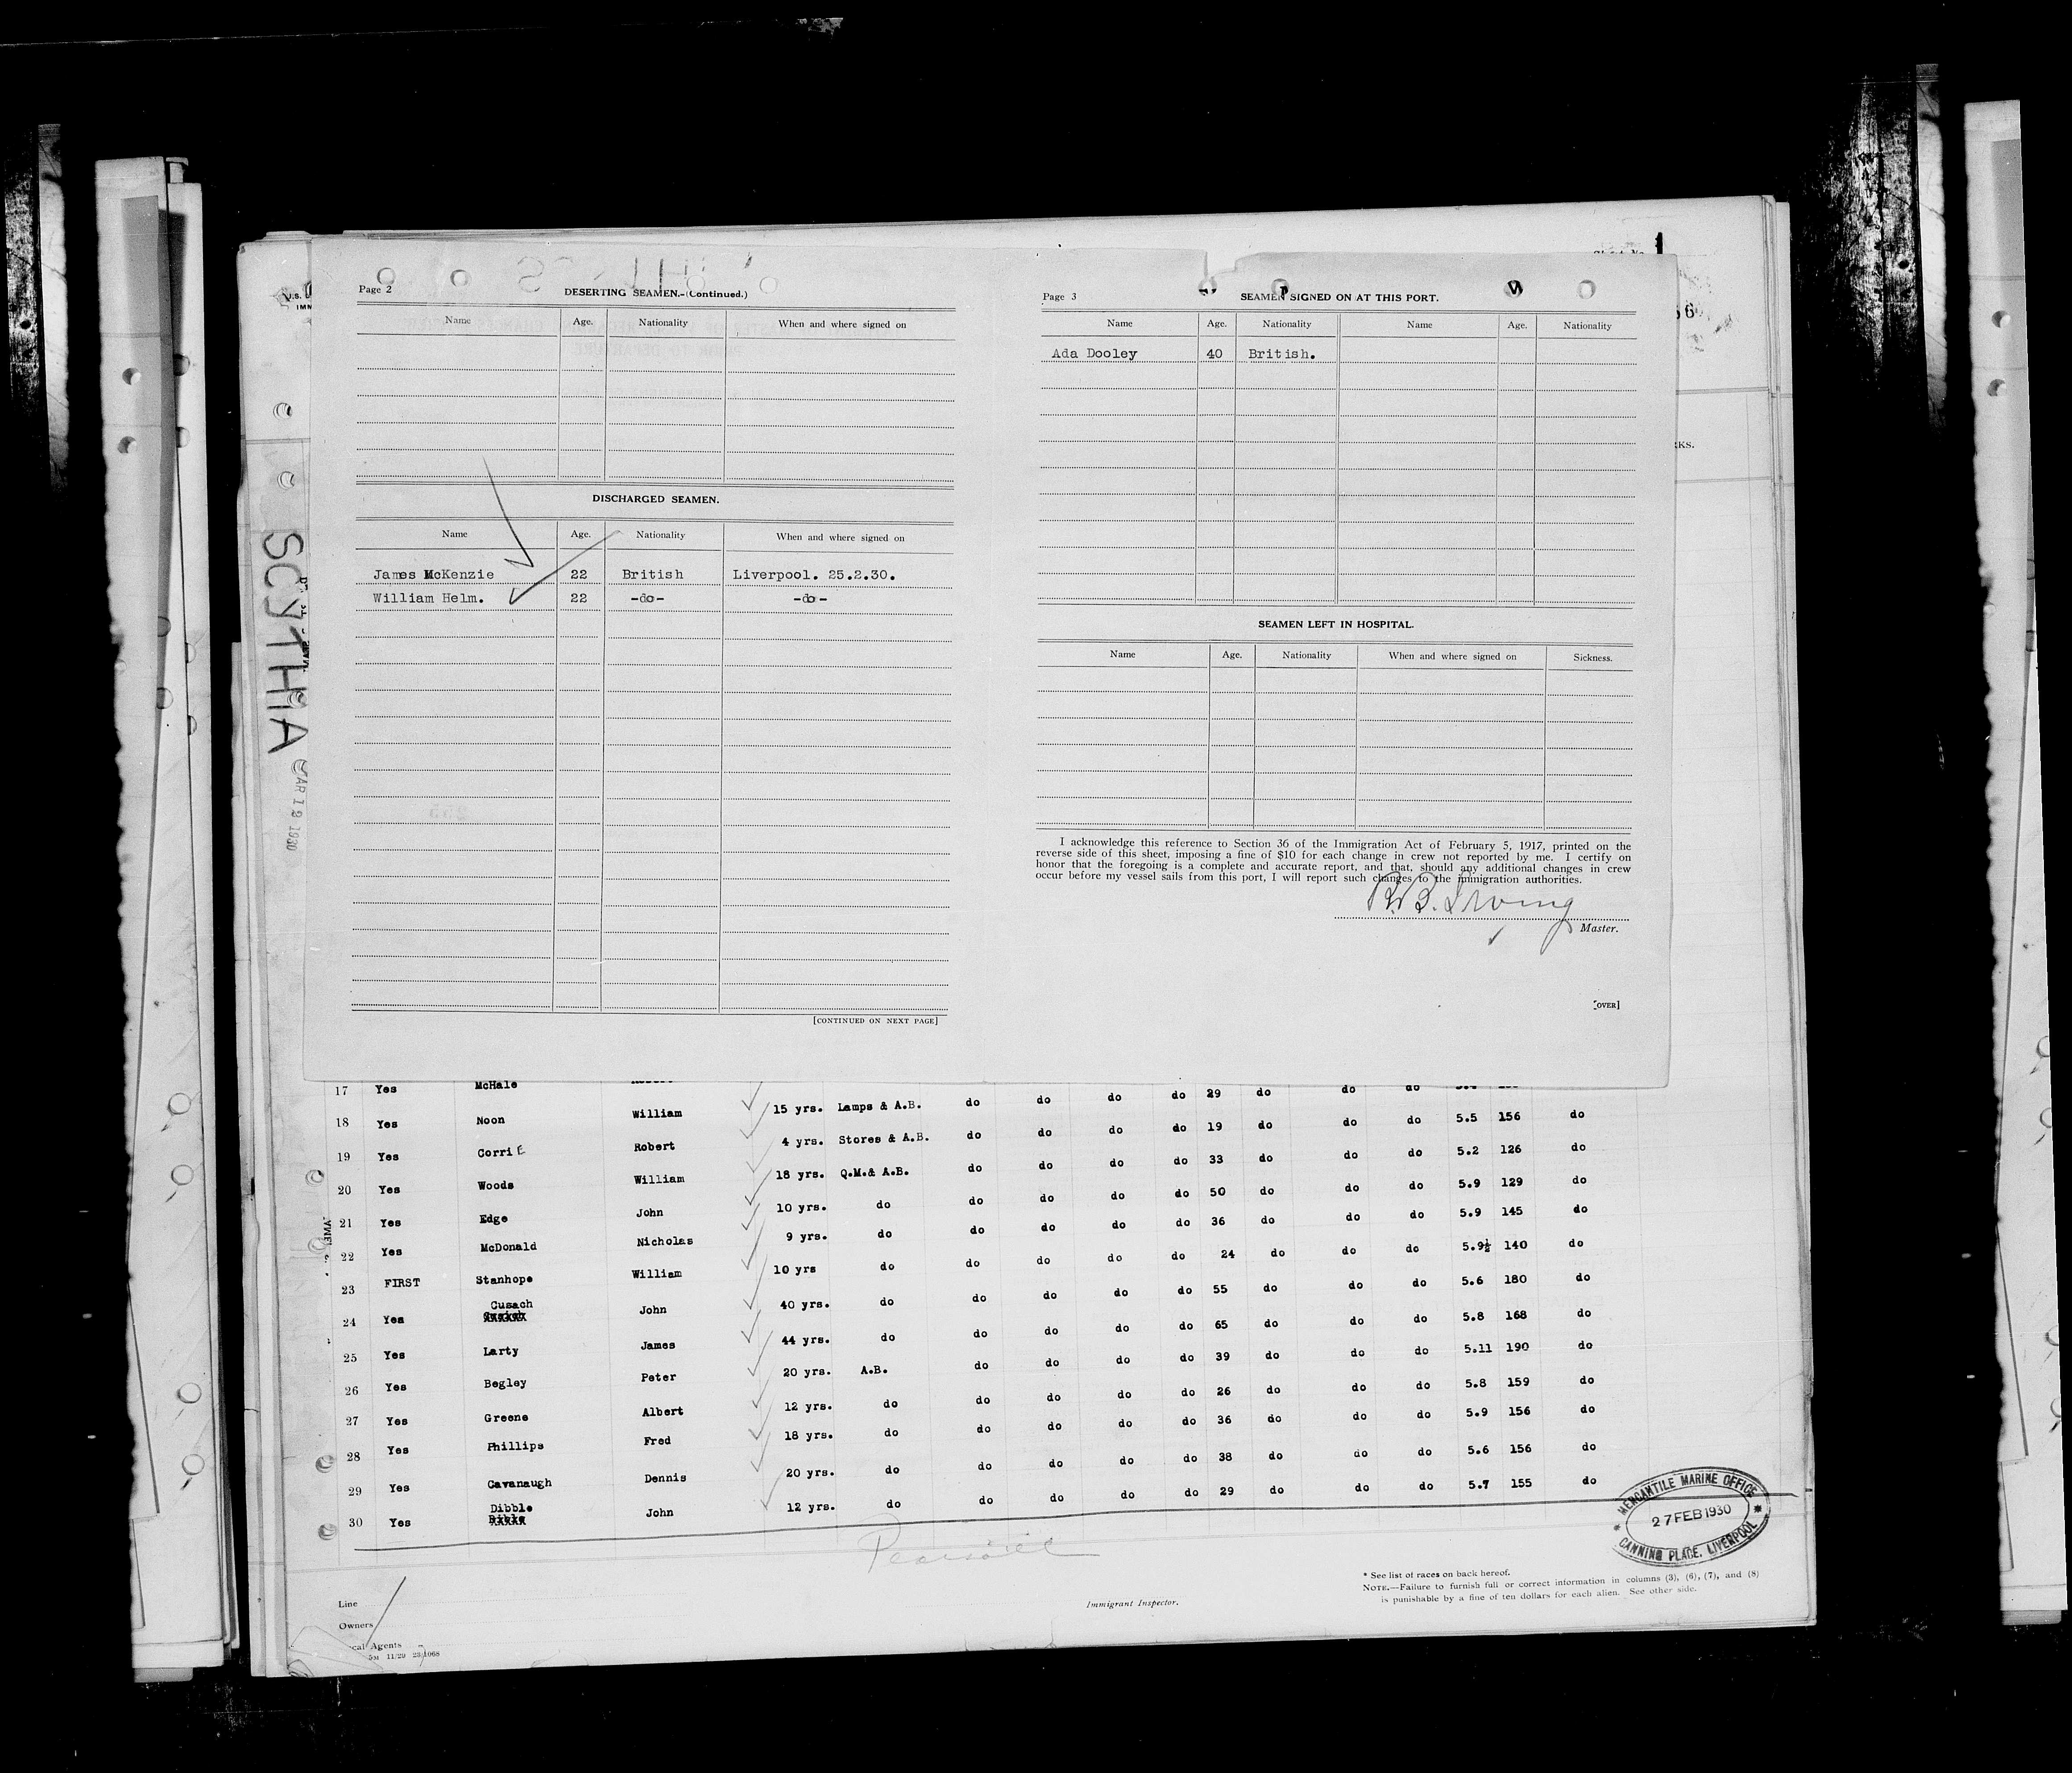 Page 2
DESERTING SEAMEN.-(Continued.)
Name Age. Nationality When and where signed on
DISCHARGED SEAMEN.
Name Age. Nationality When and where signed on
James McKenzie 22 British Liverpool. 25.2.30.
William Helm. 22 -do- -do-
[CONTINUED ON NEXT PAGE]
Page 3
SEAMEN SIGNED ON AT THIS PORT.
Name Age. Nationality Name Age. Nationality
Ada Dooley 40 British.
SEAMEN LEFT IN HOSPITAL.
Name Age. Nationality When and where signed on Sickness.
I acknowledge this reference to Section 36 of the Immigration Act of February 5, 1917, printed on the
reverse side of this sheet, imposing a fine of $10 for each change in crew not reported by me. I certify on
honor that the foregoing is a complete and accurate report, and that, should any additional changes in crew
occur before my vessel sails from this port, I will report such changes to the immigration authorities.
R.B. Irving
Master.
[OVER]
SCYTHIA
1930
17 Yes McHale 29 do do do
18 Yes Noon William 15 yrs. Lamps & A.B. do do do do 19 do do do 5.5 156 do
19 Yes Corrie Robert 4 yrs. Stores & A.B. do do do do 33 do do do 5.2 126 do
20 Yes Woods William 18 yrs. Q.M.& A.B. do do do do 50 do do do 5.9 129 do
21 Yes Edge John 10 yrs. do do do do do 36 do do do 5.9 145 do
22 Yes McDonald Nicholas 9 yrs. do do do do do 24 do do do 5.9½ 140 do
23 FIRST Stanhope William 10 yrs do do do do do 55 do do do 5.6 180 do
24 Yes Cusach John 40 yrs. do do do do do 65 do do do 5.8 168 do
25 Yes Larty James 44 yrs. do do do do do 39 do do do 5.11 190 do
26 Yes Begley Peter 20 yrs. A.B. do do do do 26 do do do 5.8 159 do
27 Yes Greene Albert 12 yrs. do do do do do 36 do do do 5.9 156 do
28 Yes Phillips Fred 18 yrs. do do do do do 38 do do do 5.6 156 do
29 Yes Cavanaugh Dennis 20 yrs. do do do do do 29 do do do 5.7 155 do
30 Yes Dibble John 12 yrs. do
MERCANTILE MARINE OFFICE
27 FEB 1930
CANNING PLACE, LIVERPOOL
* See list of races on back hereof.
NOTE.—Failure to furnish full or correct information in columns (3), (6), (7), and (8)
is punishable by a fine of ten dollars for each alien. See other side.
Line
Immigrant Inspector.
Owners
Agents
5M 11/29 23/1068